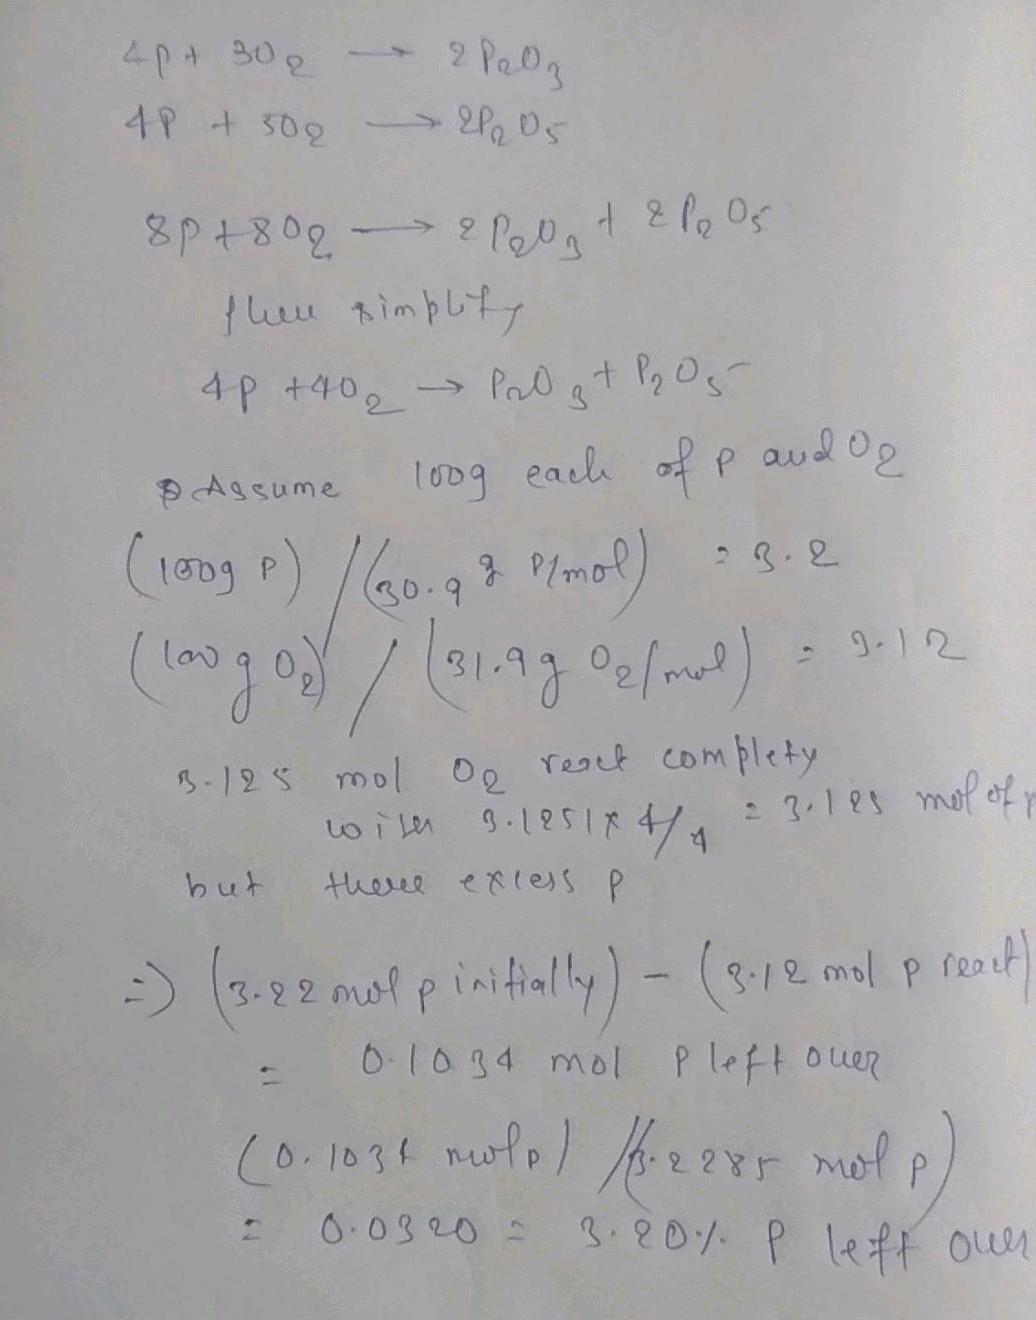 4P + 3O2 → 2P2O3
4P + 5O2 → 2P2O5
8P + 8O2 → 2P2O3 + 2P2O5
then simplify
4P + 4O2 → P2O3 + P2O5
Assume 100g each of P and O2
(100g P) / (30.9 g P/mol) = 3.2
(100 g O2) / (31.9g O2/mol) = 3.12
3.125 mol O2 react complety
with 3.1251 x 4/4 = 3.125 mol of P
but there excess P
=) (3.22 mol P initially) - (3.12 mol P react)
= 0.1034 mol P left over
(0.1034 mol P) / (3.2285 mol P)
= 0.0320 = 3.20% P left over